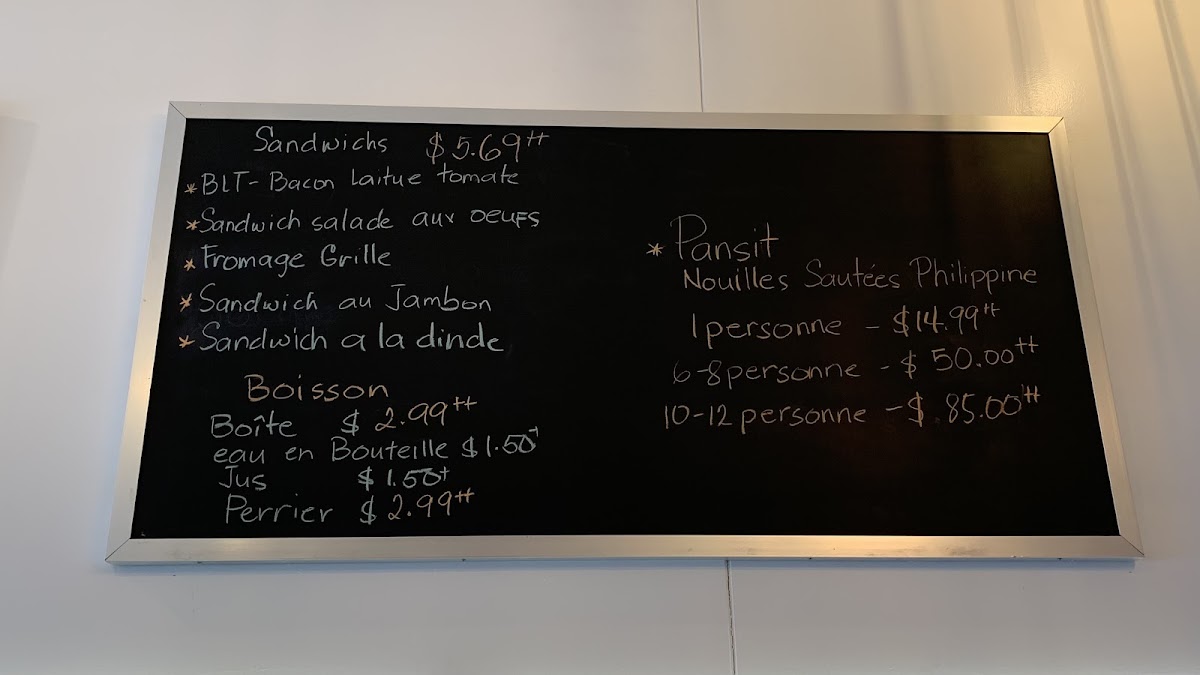 Sandwichs $5.69++
*BLT- Bacon Laitue tomate
*Sandwich salade aux oeufs
*Fromage Grille
*Sandwich au Jambon
*Sandwich a la dinde
Boisson
Boîte $2.99++
eau en Bouteille $1.50+
Jus $1.50+
Perrier $2.99++
*Pansit
Nouilles Sautées Philippine
1 personne - $14.99++
6-8 personne - $50.00++
10-12 personne - $85.00++